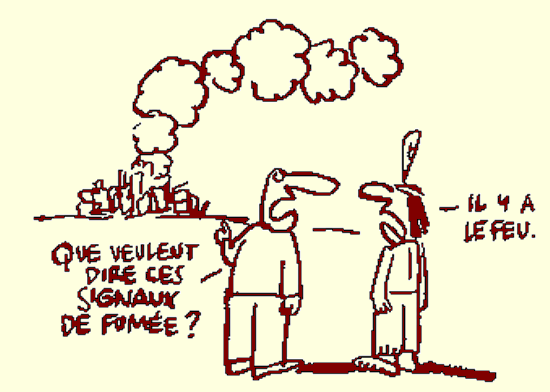 QUE VEULENT
DIRE CES
SIGNAUX
DE FUMÉE ?
— IL Y A
LE FEU.